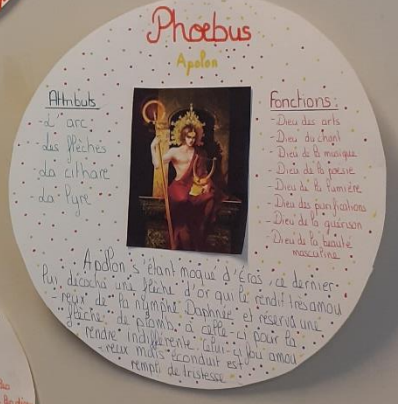 Phoebus
Apolon
Attributs
- L'arc
- Les flèches
- La cithare
- La lyre
Fonctions :
- Dieu des arts
- Dieu du chant
- Dieu de la musique
- Dieu de la poesie
- Dieu de la lumière
- Dieu des purifications
- Dieu de la guérison
- Dieu de la beauté
masculine
Apollon s'étant moqué d'éros, ce dernier
lui décocha une flèche d'or qui le rendit très amou
-reux de la nymphe Daphnée et réserva une
flèche de plomb, à celle-ci pour la
rendre indifférente. Celui-ci fou amou
-reux mais éconduit est
rempli de tristesse